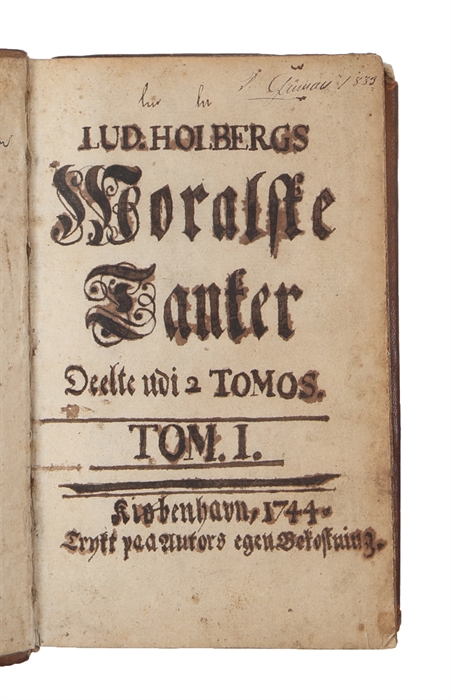 LUD. HOLBERGS
Moralske
Tanker
Deelte udi 2 TOMOS.
TOM. I.
Kiøbenhavn, 1744.
Trykt paa Autors egen Bekostning.